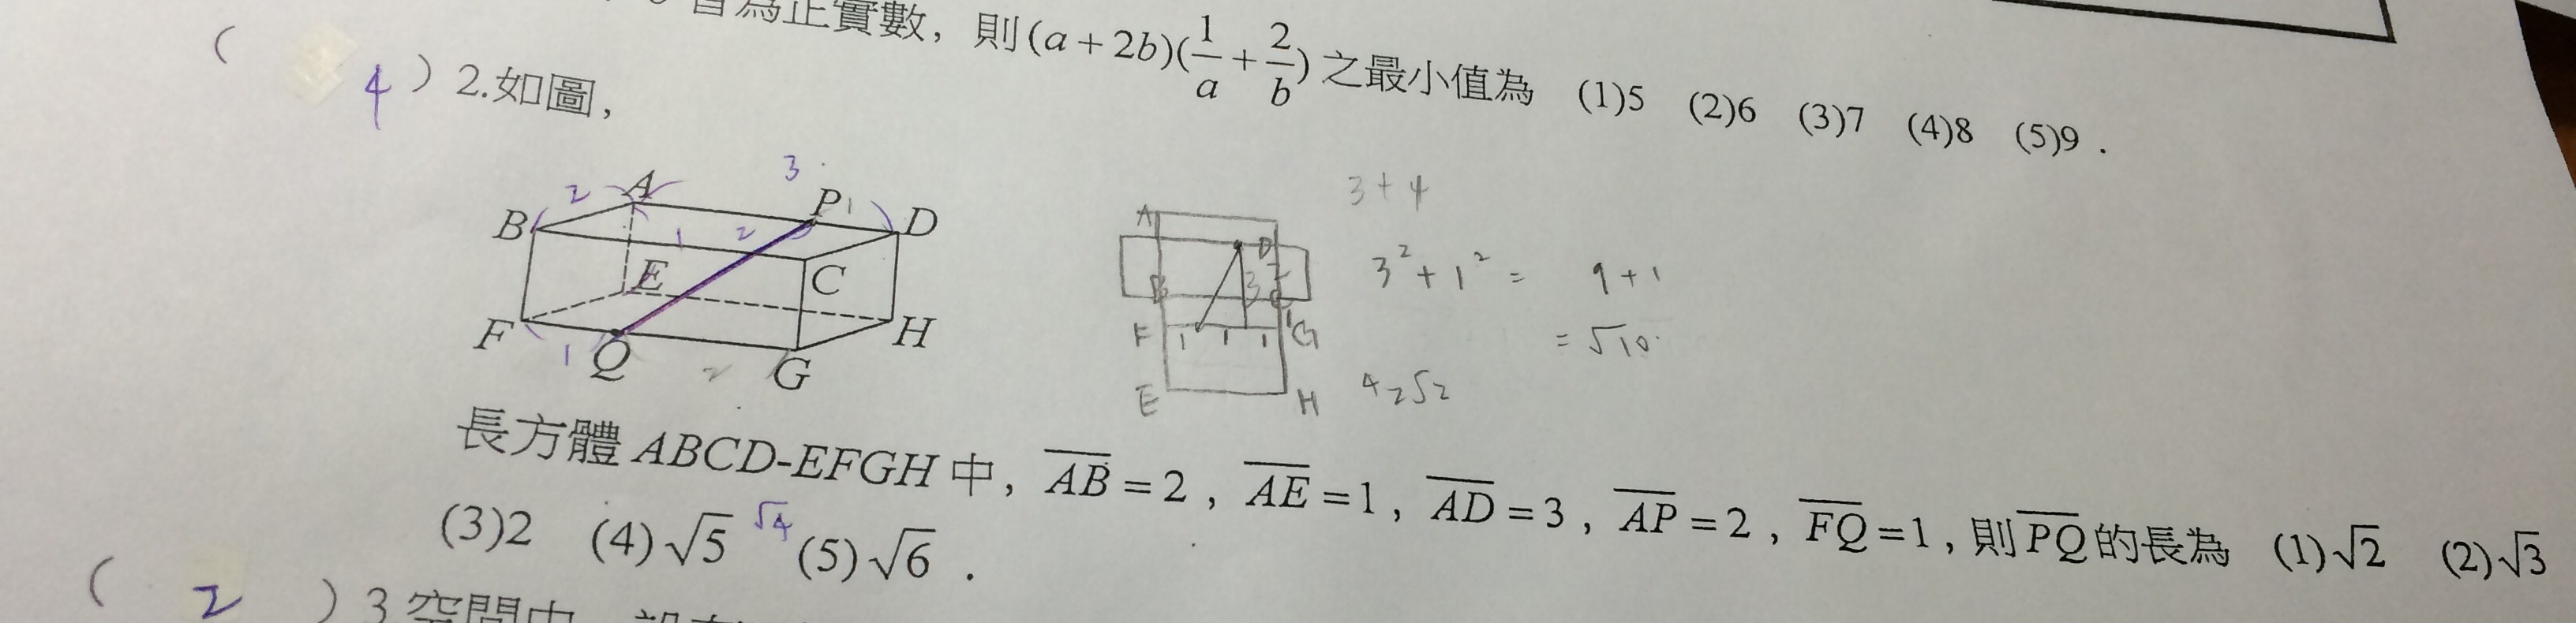 皆為正實數，則(a + 2b)(1/a + 2/b)之最小值為 (1)5 (2)6 (3)7 (4)8 (5)9．
( 4 ) 2.如圖，
3
2 A P 1 D
B 1 2
E C
F H
1 Q 2 G
A D
B 3 2 C
F 1 1 1 G 1
E H
3 + 4
3² + 1² = 9 + 1
= √10
4 2√2
長方體 ABCD-EFGH 中，AB = 2，AE = 1，AD = 3，AP = 2，FQ = 1，則PQ的長為 (1)√2 (2)√3
(3)2 (4)√5 √4 (5)√6．
( 2 ) 3.空間中，設